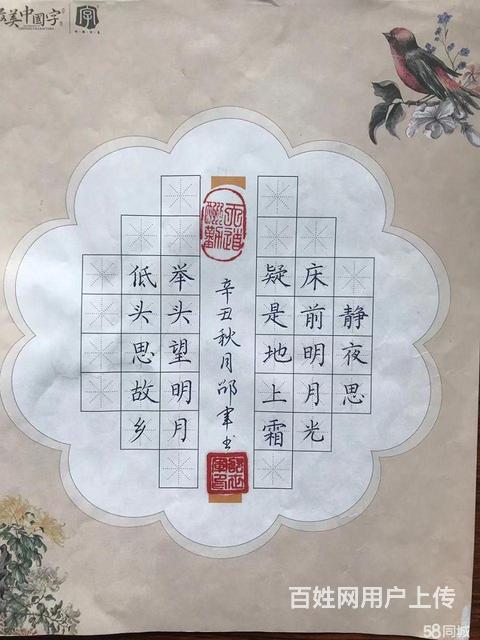 最美中國字
字
静夜思
床前明月光
疑是地上霜
辛丑秋月邵聿书
天道酬勤
举头望明月
低头思故乡
百姓网用户上传
58同城